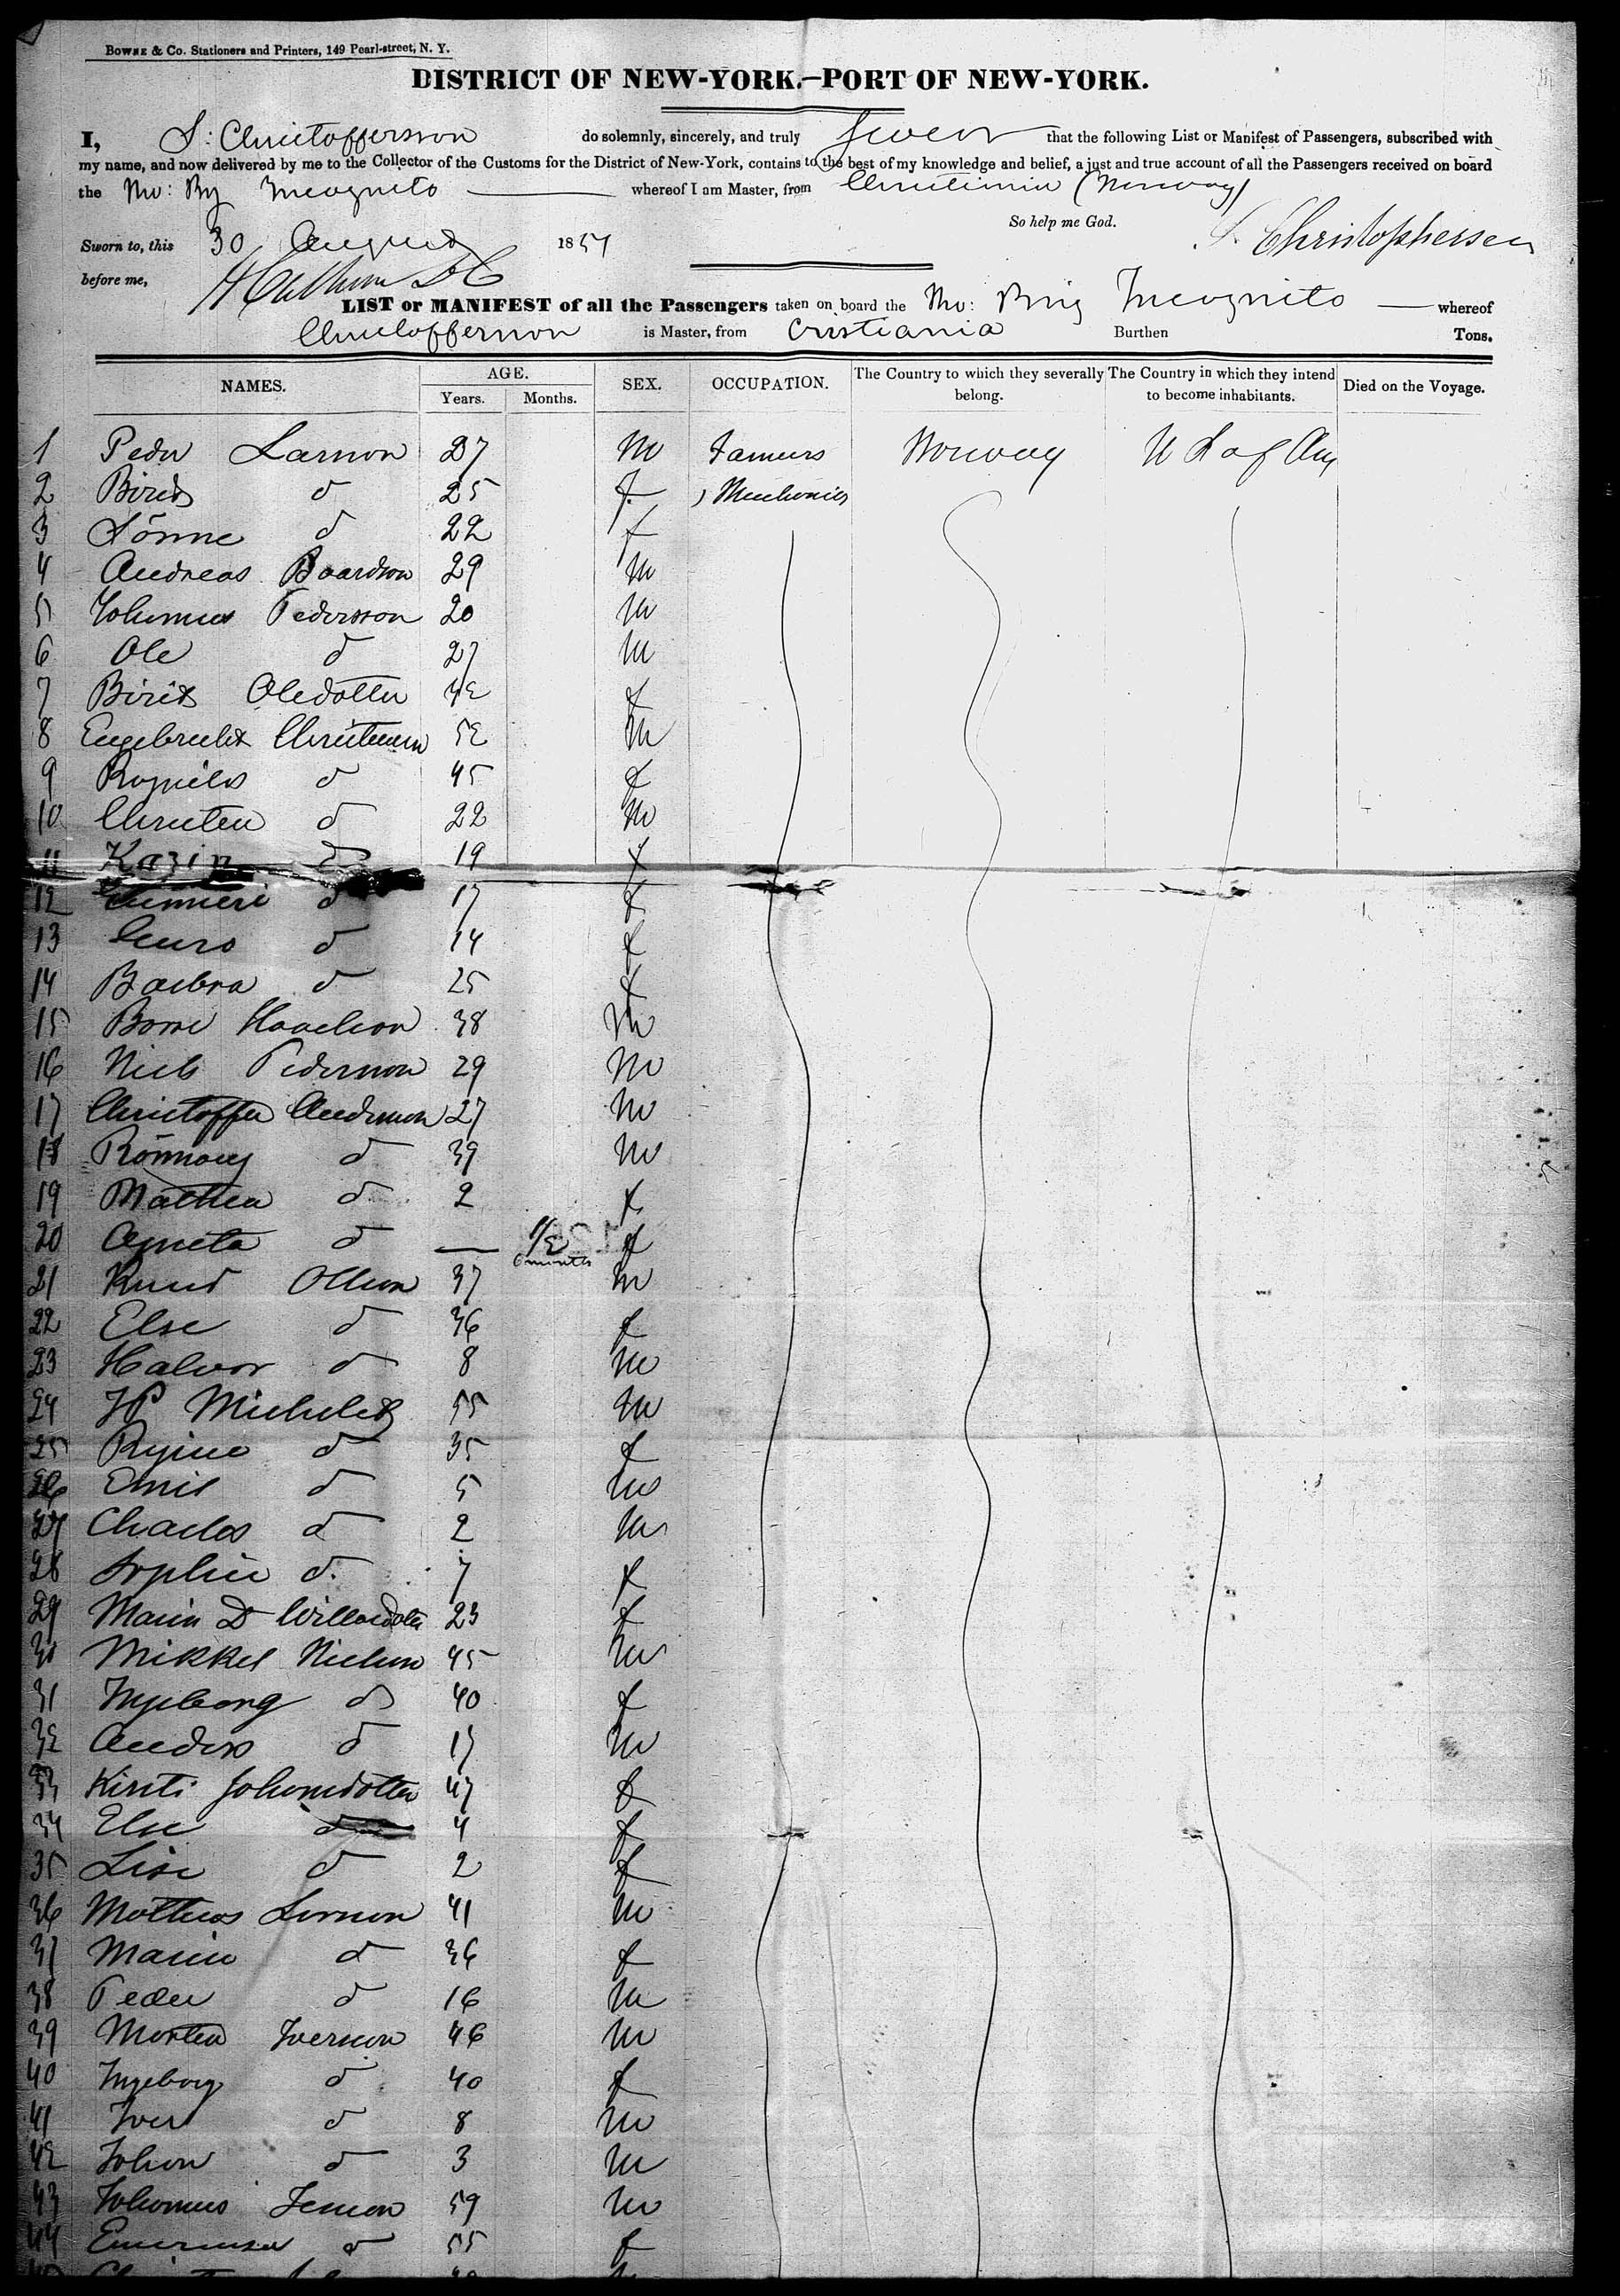 BOWNE & Co. Stationers and Printers, 149 Pearl-street, N. Y.
DISTRICT OF NEW-YORK.—PORT OF NEW-YORK.
I, S: Christoffersson do solemnly, sincerely, and truly swear that the following List or Manifest of Passengers, subscribed with
my name, and now delivered by me to the Collector of the Customs for the District of New-York, contains to the best of my knowledge and belief, a just and true account of all the Passengers received on board
the No: Brg Incognito whereof I am Master, from Christiania (Norway)
So help me God.
Sworn to, this 30 August 1854 S. Christophersen
before me,
LIST or MANIFEST of all the Passengers taken on board the No: Brig Incognito whereof
Christoffersson is Master, from Cristiania Burthen Tons.
NAMES. AGE. Years. Months. SEX. OCCUPATION. The Country to which they severally belong. The Country in which they intend to become inhabitants. Died on the Voyage.
1 Peder Larsson 27 m Farmers Norway U S of Am
2 Birit d 25 f. Mechanics
3 Sönne d 22 f
4 Andreas Baardson 29 m
5 Johannes Pedersson 20 m
6 Ole d 27 m
7 Birit Oledotter 42 f
8 Engebrecht Christensen 52 m
9 Rognild d 45 f
10 Christen d 22 m
11 Kazin d 19 f
12 d 17 f
13 Guro d 14 f
14 Barbra d 25 f
15 Borre 38 m
16 Niels Pedersson 29 m
17 Christoffer Andersson 27 m
18 Rönnaug d 39 m
19 Mathea d 2 f
20 Agneta d — 1/2 6 months f
21 Knud Ollson 37 m
22 Else d 36 f
23 Halvor d 8 m
24 JP Michelet 55 m
25 Regine d 35 f
26 Emil d 5 m
27 Charles d 2 m
28 Sophie d. 7 f
29 Marin D 23 f
30 Mikkel Nielson 45 m
31 Ingeborg d 40 f
32 Anders d 17 m
33 Kirsti Johansdotter 47 f
34 Else 4 f
35 Lise d 2 f
36 Mathias Larsson 41 m
37 Marie d 36 f
38 Peder d 16 m
39 Morten Iversson 46 m
40 Ingeborg d 40 f
41 Iver d 8 m
42 Johan d 3 m
43 Johannes Jensson 59 m
44 d 55 f